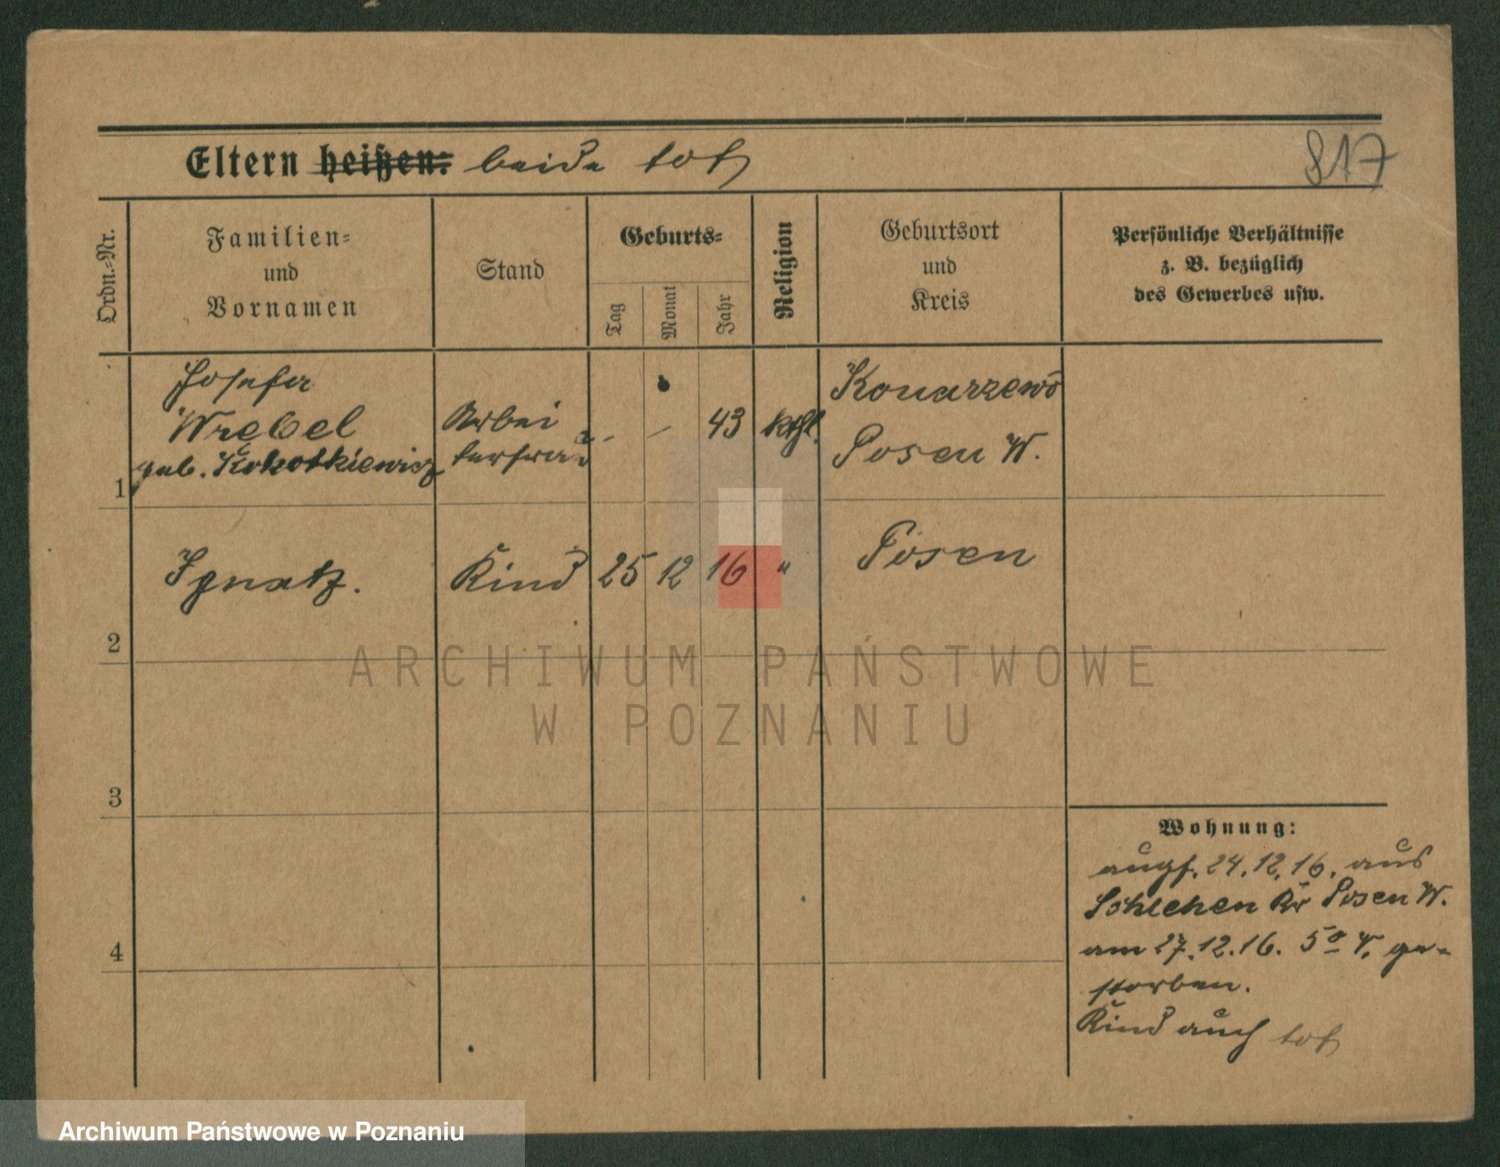 817
Eltern heißen: beide tot
Ordn.-Nr.
Familien-
und
Vornamen
Stand
Geburts-
Tag
Monat
Jahr
Religion
Geburtsort
und
Kreis
Persönliche Verhältnisse
z. B. bezüglich
des Gewerbes usw.
1
Josefa
Wrebel
geb. Kokotkiewicz
Arbei
terfrau
- - 43 kthl.
Konarzewo
Posen W.
2
Ignatz. Kind 25 12 16 " Posen
3
4
Wohnung:
augf. 24.12.16. aus
Kr Posen W.
am 27.12.16. 5º V. ge-
storben.
Kind auch tot
ARCHIWUM PAŃSTWOWE
W POZNANIU
Archiwum Państwowe w Poznaniu